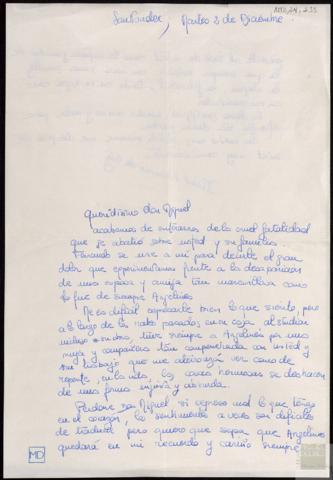 Santander, Martes 2 de Diciembre.
Queridísimo don Miguel
acabamos de enterarnos de la cruel fatalidad
que se abatió sobre usted y su familia.
Fernando se une a mí para decirle el gran
dolor que experimentamos frente a la desaparición
de una esposa y amiga tan maravillosa como
lo fue de siempre Angelines.
Me es difícil expresarle bien lo que siento, pero
a lo largo de los ratos pasados en su casa, al estudiar
tuve siempre a Angelines por una
mujer y compañera tan compenetrada con usted y
su trabajo que me ver como de
repente, en la vida, las cosas hermosas se deshacen
de una forma injusta y absurda.
Perdone Don Miguel si expreso mal lo que tengo
en el corazón, los sentimientos a veces son difíciles
de traducir, pero quiero que sepa que Angelines
quedará en mi recuerdo y cariño siempre
MD